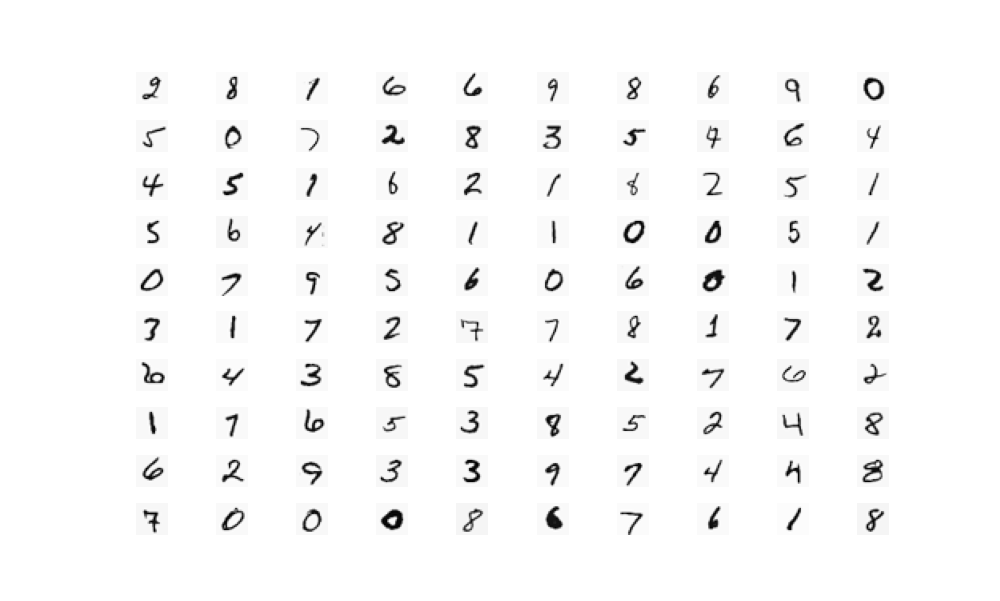 2 8 1 6 6 9 8 6 9 0
5 0 7 2 8 3 5 9 6 4
4 5 1 6 2 1 8 2 5 1
5 6 4 8 1 1 0 0 5 1
0 7 9 5 6 0 6 0 1 2
3 1 7 2 7 7 8 1 7 2
6 4 3 8 5 4 2 7 6 2
1 7 6 5 3 8 5 2 4 8
6 2 9 3 3 9 7 4 4 8
7 0 0 0 8 6 7 6 1 8